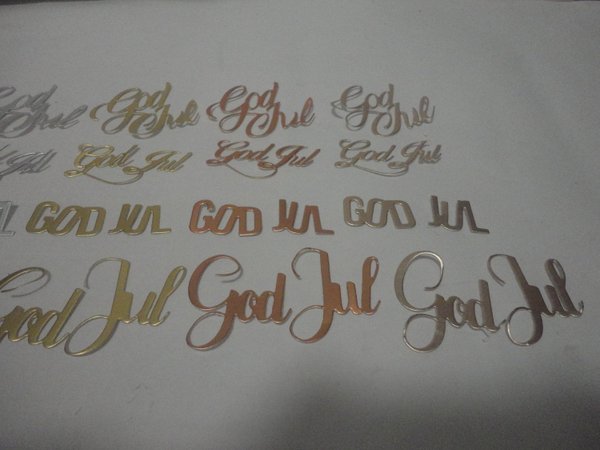 God Jul God Jul God Jul God Jul
God Jul God Jul God Jul God Jul
GOD JUL GOD JUL GOD JUL
God Jul God Jul God Jul